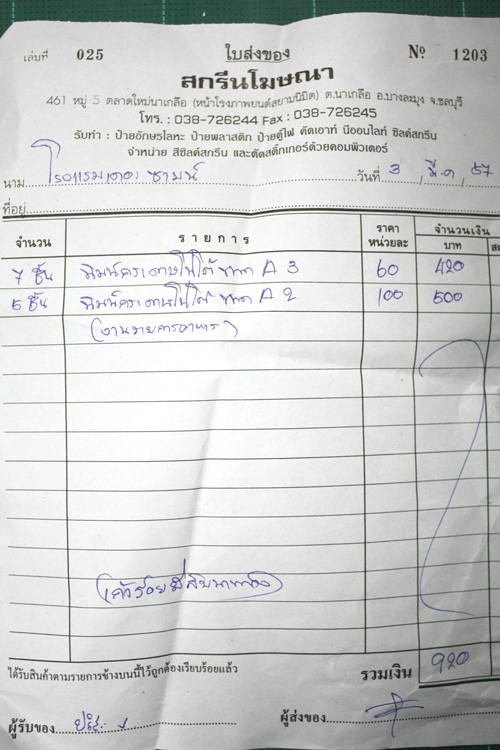 เล่มที่ 025 ใบส่งของ Nº 1203
สกรีนโฆษณา
461 หมู่ 5 ตลาดใหม่นาเกลือ (หน้าโรงภาพยนต์สยามนิมิต) ต.นาเกลือ อ.บางละมุง จ.ชลบุรี
โทร. : 038-726244 Fax : 038-726245
รับทำ : ป้ายอักษรโลหะ ป้ายพลาสติก ป้ายตู้ไฟ คัตเอาท์ นีออนไลท์ ซิลค์สกรีน
จำหน่าย สีซิลค์สกรีน และตัดสติ๊กเกอร์ด้วยคอมพิวเตอร์
นาม โรงแรมเดอะ วันที่ 3 มี.ค. 57
ที่อยู่
จำนวน รายการ ราคาหน่วยละ จำนวนเงิน
บาท
7 ชิ้น พิมพ์กระดาษโฟโต้ ขนาด A3 60 420
5 ชิ้น พิมพ์กระดาษโฟโต้ ขนาด A2 100 500
(งานรายการอาหาร)
(เก้าร้อยยี่สิบบาทถ้วน)
ได้รับสินค้าตามรายการข้างบนนี้ไว้ถูกต้องเรียบร้อยแล้ว รวมเงิน 920
ผู้รับของ ผู้ส่งของ